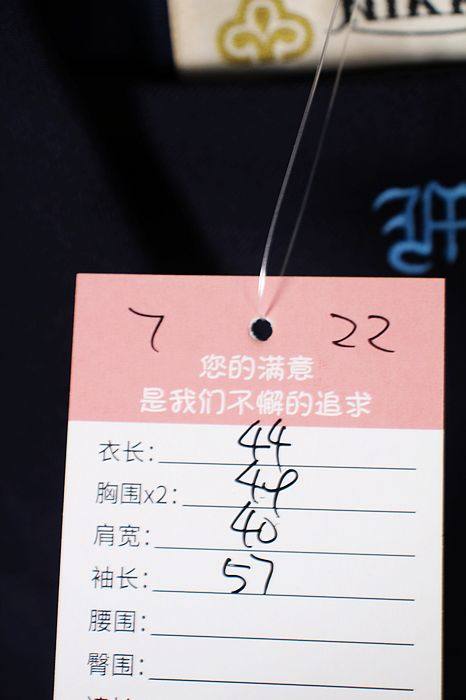 7 22
您的满意
是我们不懈的追求
衣长: 44
胸围x2: 49
肩宽: 40
袖长: 57
腰围:
臀围: